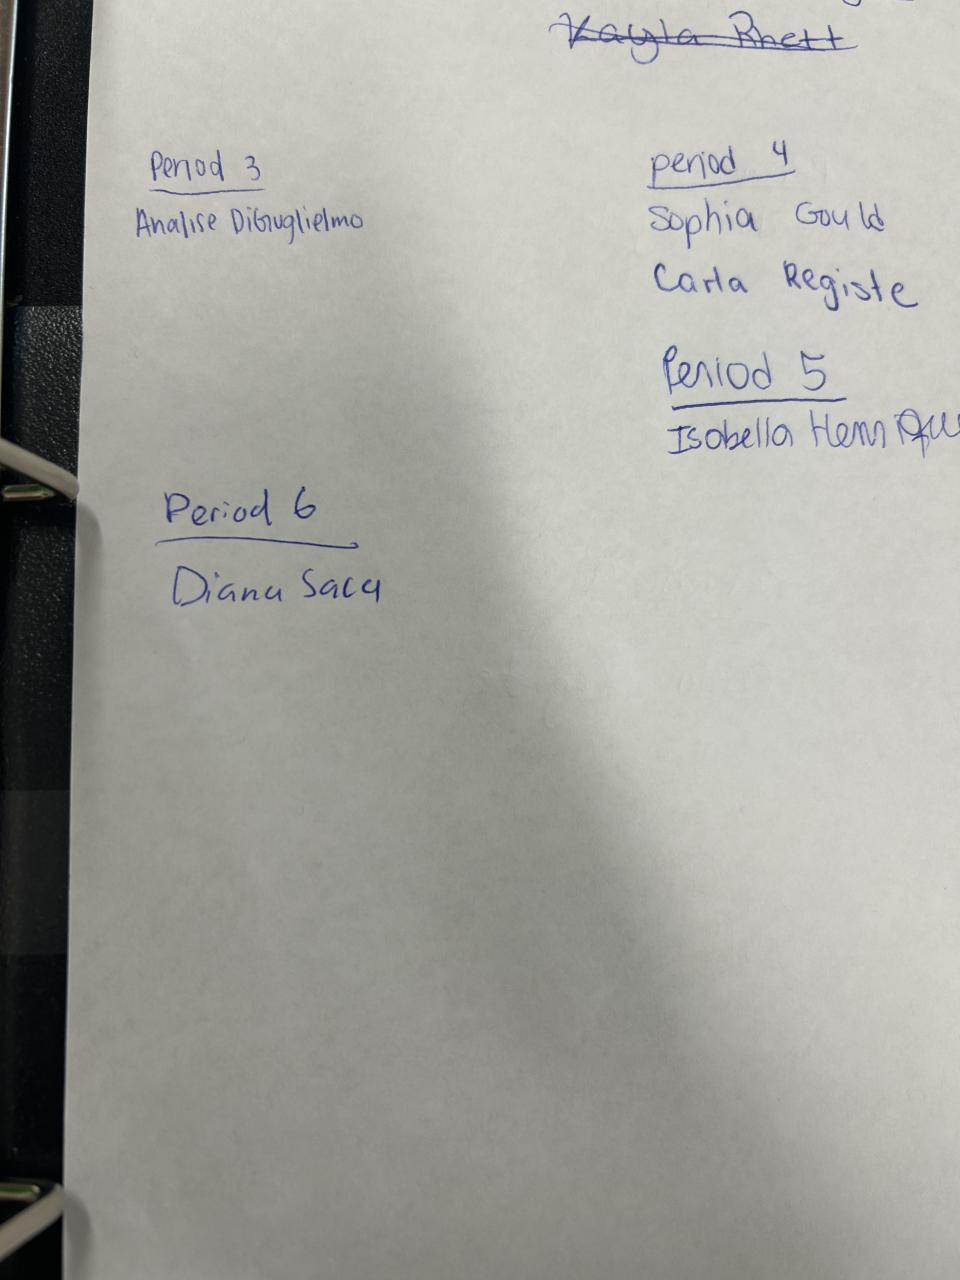 Kayla Rhett
Period 3
Analise DiGuglielmo
period 4
Sophia Gould
Carla Registe
Period 5
Isabella
Period 6
Diana Saca